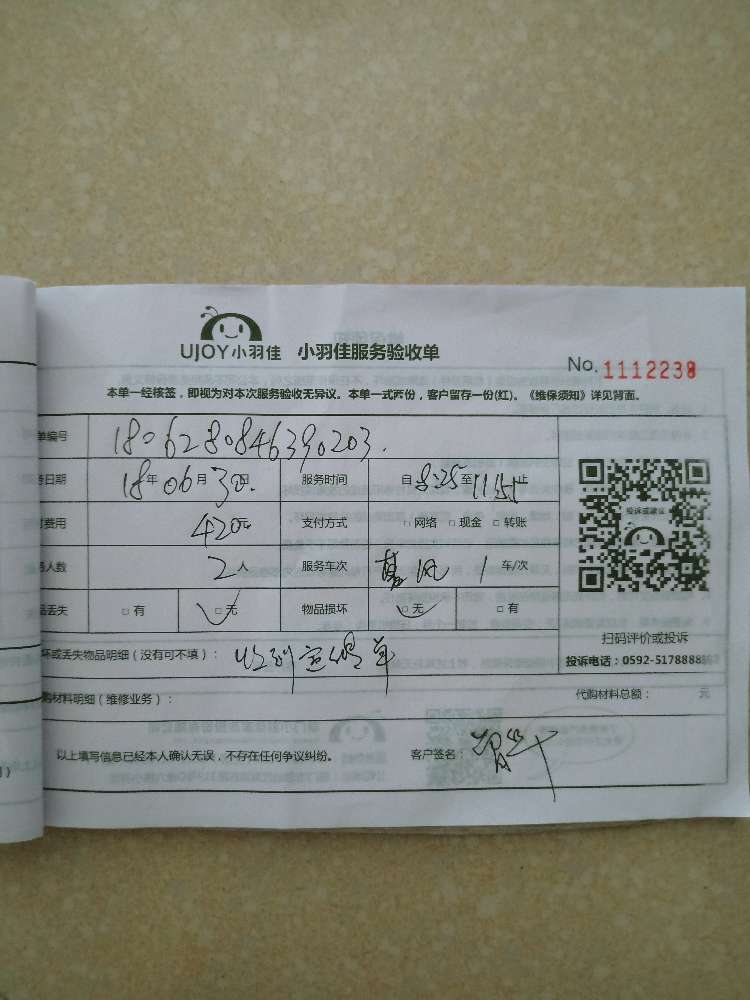 UJOY小羽佳 小羽佳服务验收单
No. 1112238
本单一经核签，即视为对本次服务验收无异议。本单一式两份，客户留存一份(红)。《维保须知》详见背面。
单编号 1806280846390203.
务日期 18年06月30日 服务时间 自8:25至11:55止
费用 420元 支付方式 □网络 □现金 □转账
务人数 2人 服务车次 1 车/次
品丢失 □有 □无 物品损坏 □无 □有
投诉或建议
扫码评价或投诉
投诉电话：0592-5178888
坏或丢失物品明细（没有可不填）： 收到宣传单
购材料明细（维修业务）： 代购材料总额： 元
以上填写信息已经本人确认无误，不存在任何争议纠纷。 客户签名：